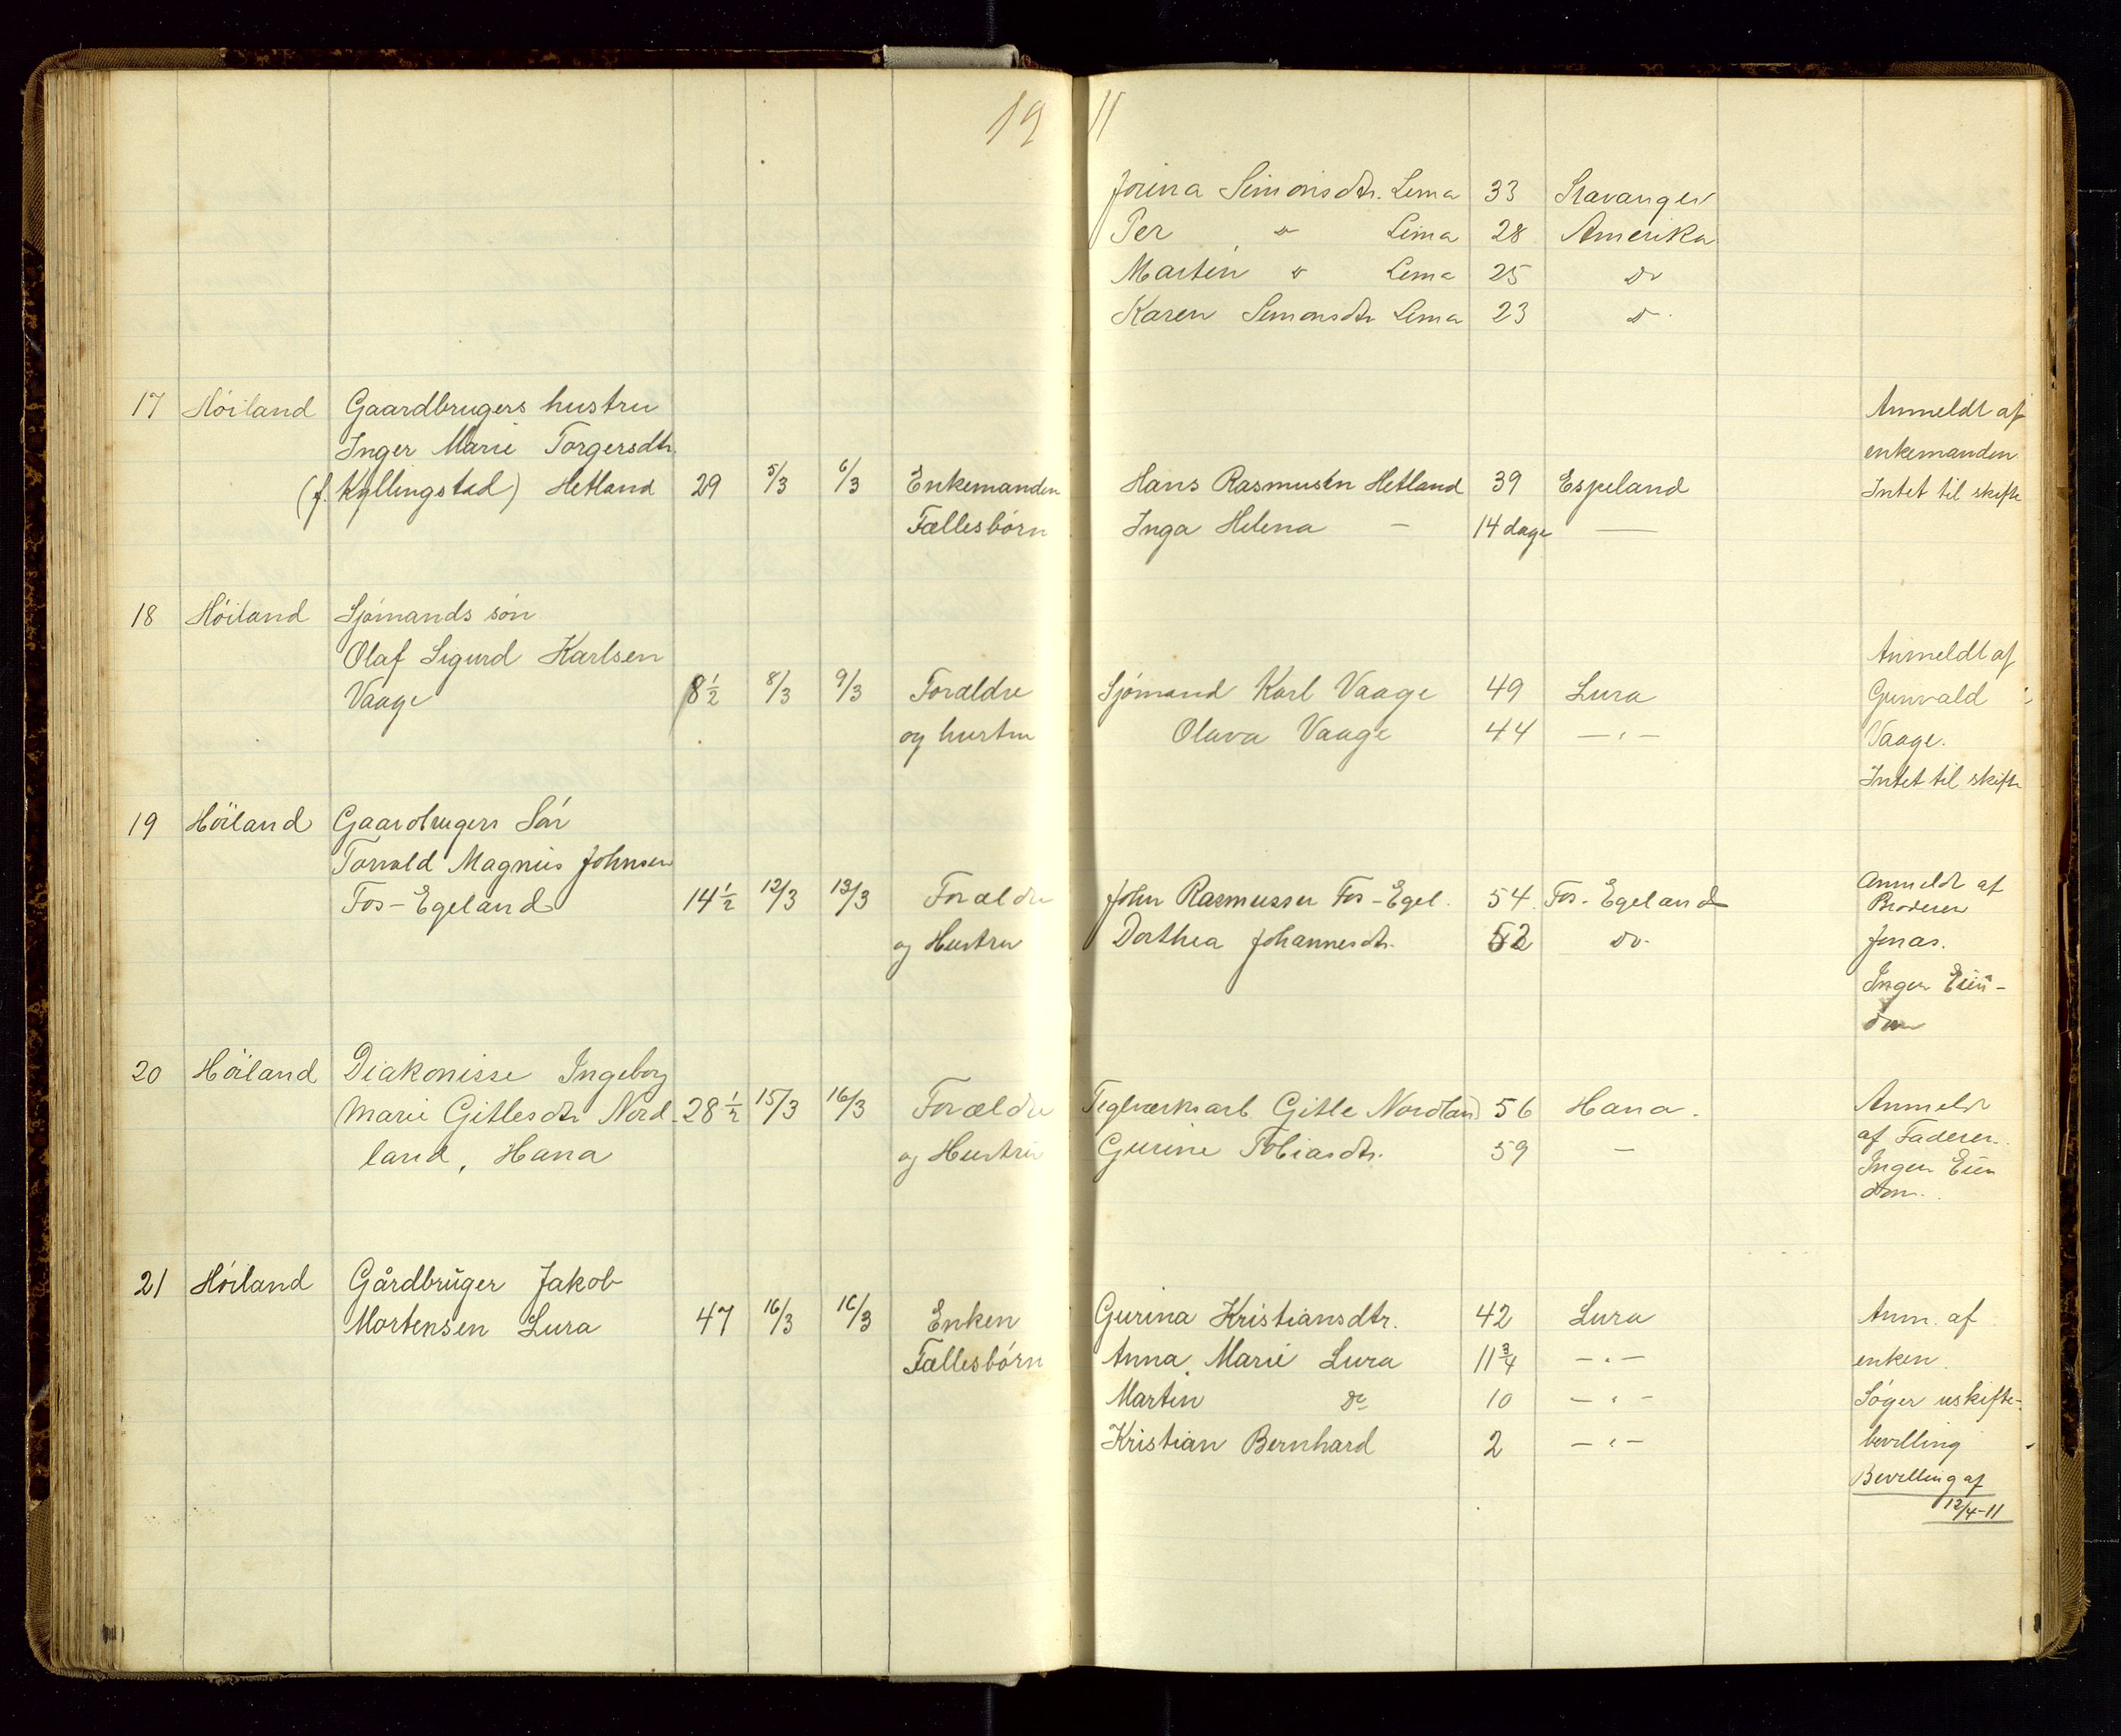 19 11
Jorina Simonsdtr. Lima 33 Stavanger
Per " Lima 28 Amerika
Martin " Lima 25 do
Karen Simonsdtr Lima 23 do
17 Höiland Gaardbrugers hustru
Inger Marie Torgersdtr.
(f. Kyllingstad) Hetland 29 5/3 6/3 Enkemanden Hans Rasmussen Hetland 39 Espeland
Fællesbörn Inga Helena — 14 dage —
Anmeldt af
enkemanden
Intet til skifte
18 Höiland Sjömands sön
Olaf Sigurd Karlsen
Vaage 8 1/2 8/3 9/3 Forældre Sjömand Karl Vaage 49 Lura
og hustru Olava Vaage 44 —"—
Anmeldt af
Gunvald
Vaage.
Intet til skifte
19 Höiland Gaardbrugers Sön
Torvald Magnus Johnsen
Fos-Egeland 14 1/2 12/3 13/3 Forældre John Rasmussen Fos-Egel. 54 Fos-Egeland
og Hustru Dorthea Johannesdtr. 52 do.
Anmeldt af
Broderen
Jonas.
Ingen Eien-
dom
20 Höiland Diakonisse Ingeborg
Marie Gitlesdtr Nord- 28 1/2 15/3 16/3 Forældre Teglværksarb. Gitle Nordland 56 Hana.
land, Hana og Hustru Gurine Tobiasdtr. 59 —
Anmeldt
af Faderen.
Ingen Eien
dom.
21 Höiland Gårdbruger Jakob
Mortensen Lura 47 16/3 16/3 Enken Gurina Kristiansdtr. 42 Lura
Fællesbörn Anna Marie Lura 11 3/4 —"—
Martin do 10 —"—
Kristian Bernhard 2 —"—
Anm. af
enken.
Söger uskifte-
bevilling
Bevilling af
12/4-11